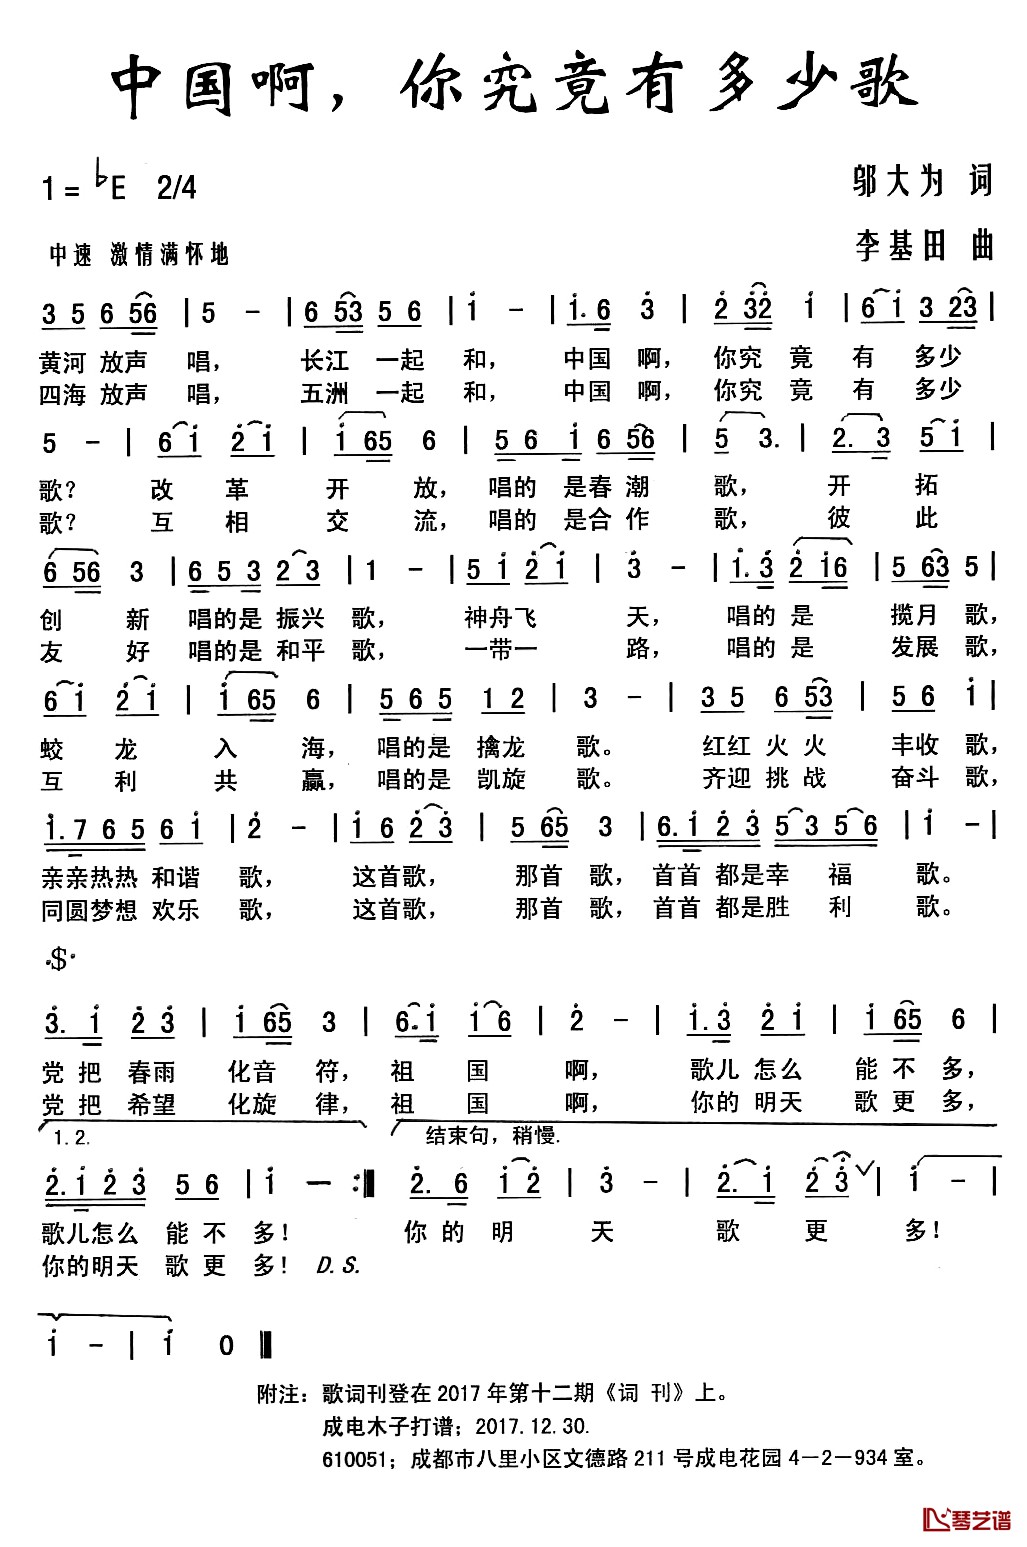 中国啊，你究竟有多少歌
1=♭E 2/4
邬大为 词
中速 激情满怀地
李基田 曲
3 5 6 56 | 5 - | 6 53 5 6 | i - | i. 6 3 | 2 32 i | 6 i 3 23 |
黄河 放声 唱， 长江 一起 和， 中国 啊， 你究 竟 有 多少
四海 放声 唱， 五洲 一起 和， 中国 啊， 你究 竟 有 多少
5 - | 6 i 2 i | i 65 6 | 5 6 i 6 56 | 5 3. | 2. 3 5 i |
歌？ 改 革 开 放， 唱的 是春 潮 歌， 开 拓
歌？ 互 相 交 流， 唱的 是合 作 歌， 彼 此
6 56 3 | 6 5 3 2 3 | 1 - | 5 i 2 i | 3 - | i. 3 2 i6 | 5 63 5 |
创 新 唱的是 振兴 歌， 神舟飞 天， 唱的 是 揽月 歌，
友 好 唱的是 和平 歌， 一带一 路， 唱的 是 发展 歌，
6 i 2 i | i 65 6 | 5 6 5 1 2 | 3 - | 3 5 6 53 | 5 6 i |
蛟 龙 入 海， 唱的是 擒龙 歌。 红红 火 火 丰收 歌，
互 利 共 赢， 唱的是 凯旋 歌。 齐迎 挑 战 奋斗 歌，
i. 7 6 5 6 i | 2 - | i 6 2 3 | 5 65 3 | 6. i 2 3 5 3 5 6 | i - |
亲亲热热 和谐 歌， 这首歌， 那首 歌， 首首 都是幸 福 歌。
同圆梦想 欢乐 歌， 这首歌， 那首 歌， 首首 都是胜 利 歌。
·$·
3. i 2 3 | i 65 3 | 6. i i 6 | 2 - | i. 3 2 i | i 65 6 |
党 把 春雨 化音 符， 祖 国 啊， 歌儿 怎么 能 不 多，
党 把 希望 化旋 律， 祖 国 啊， 你的 明天 歌 更 多，
1. 2. 结束句，稍慢.
2. i 2 3 5 6 | i — :‖ 2. 6 i 2 | 3 - | 2. i 2 3 ∨ | i - |
歌儿怎么 能 不 多！ 你 的 明 天 歌 更 多！
你的明天 歌 更 多！ D.S.
i - | i 0 ‖
附注：歌词刊登在 2017 年第十二期《词 刊》上。
成电木子打谱；2017.12.30.
610051；成都市八里小区文德路 211 号成电花园 4—2—934 室。
琴艺谱